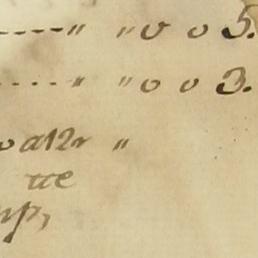 ----- " " 0 0 5.
..... " " 0 0 3.
o a 12r "
tte